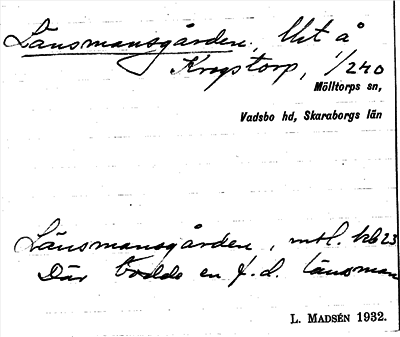 Länsmansgården, lht å
Krystorp, 1/240
Mölltorps sn,
Vadsbo hd, Skaraborgs län
Länsmansgården, mtl. kb 23
Där bodde en f.d. länsman
L. MADSÉN 1932.